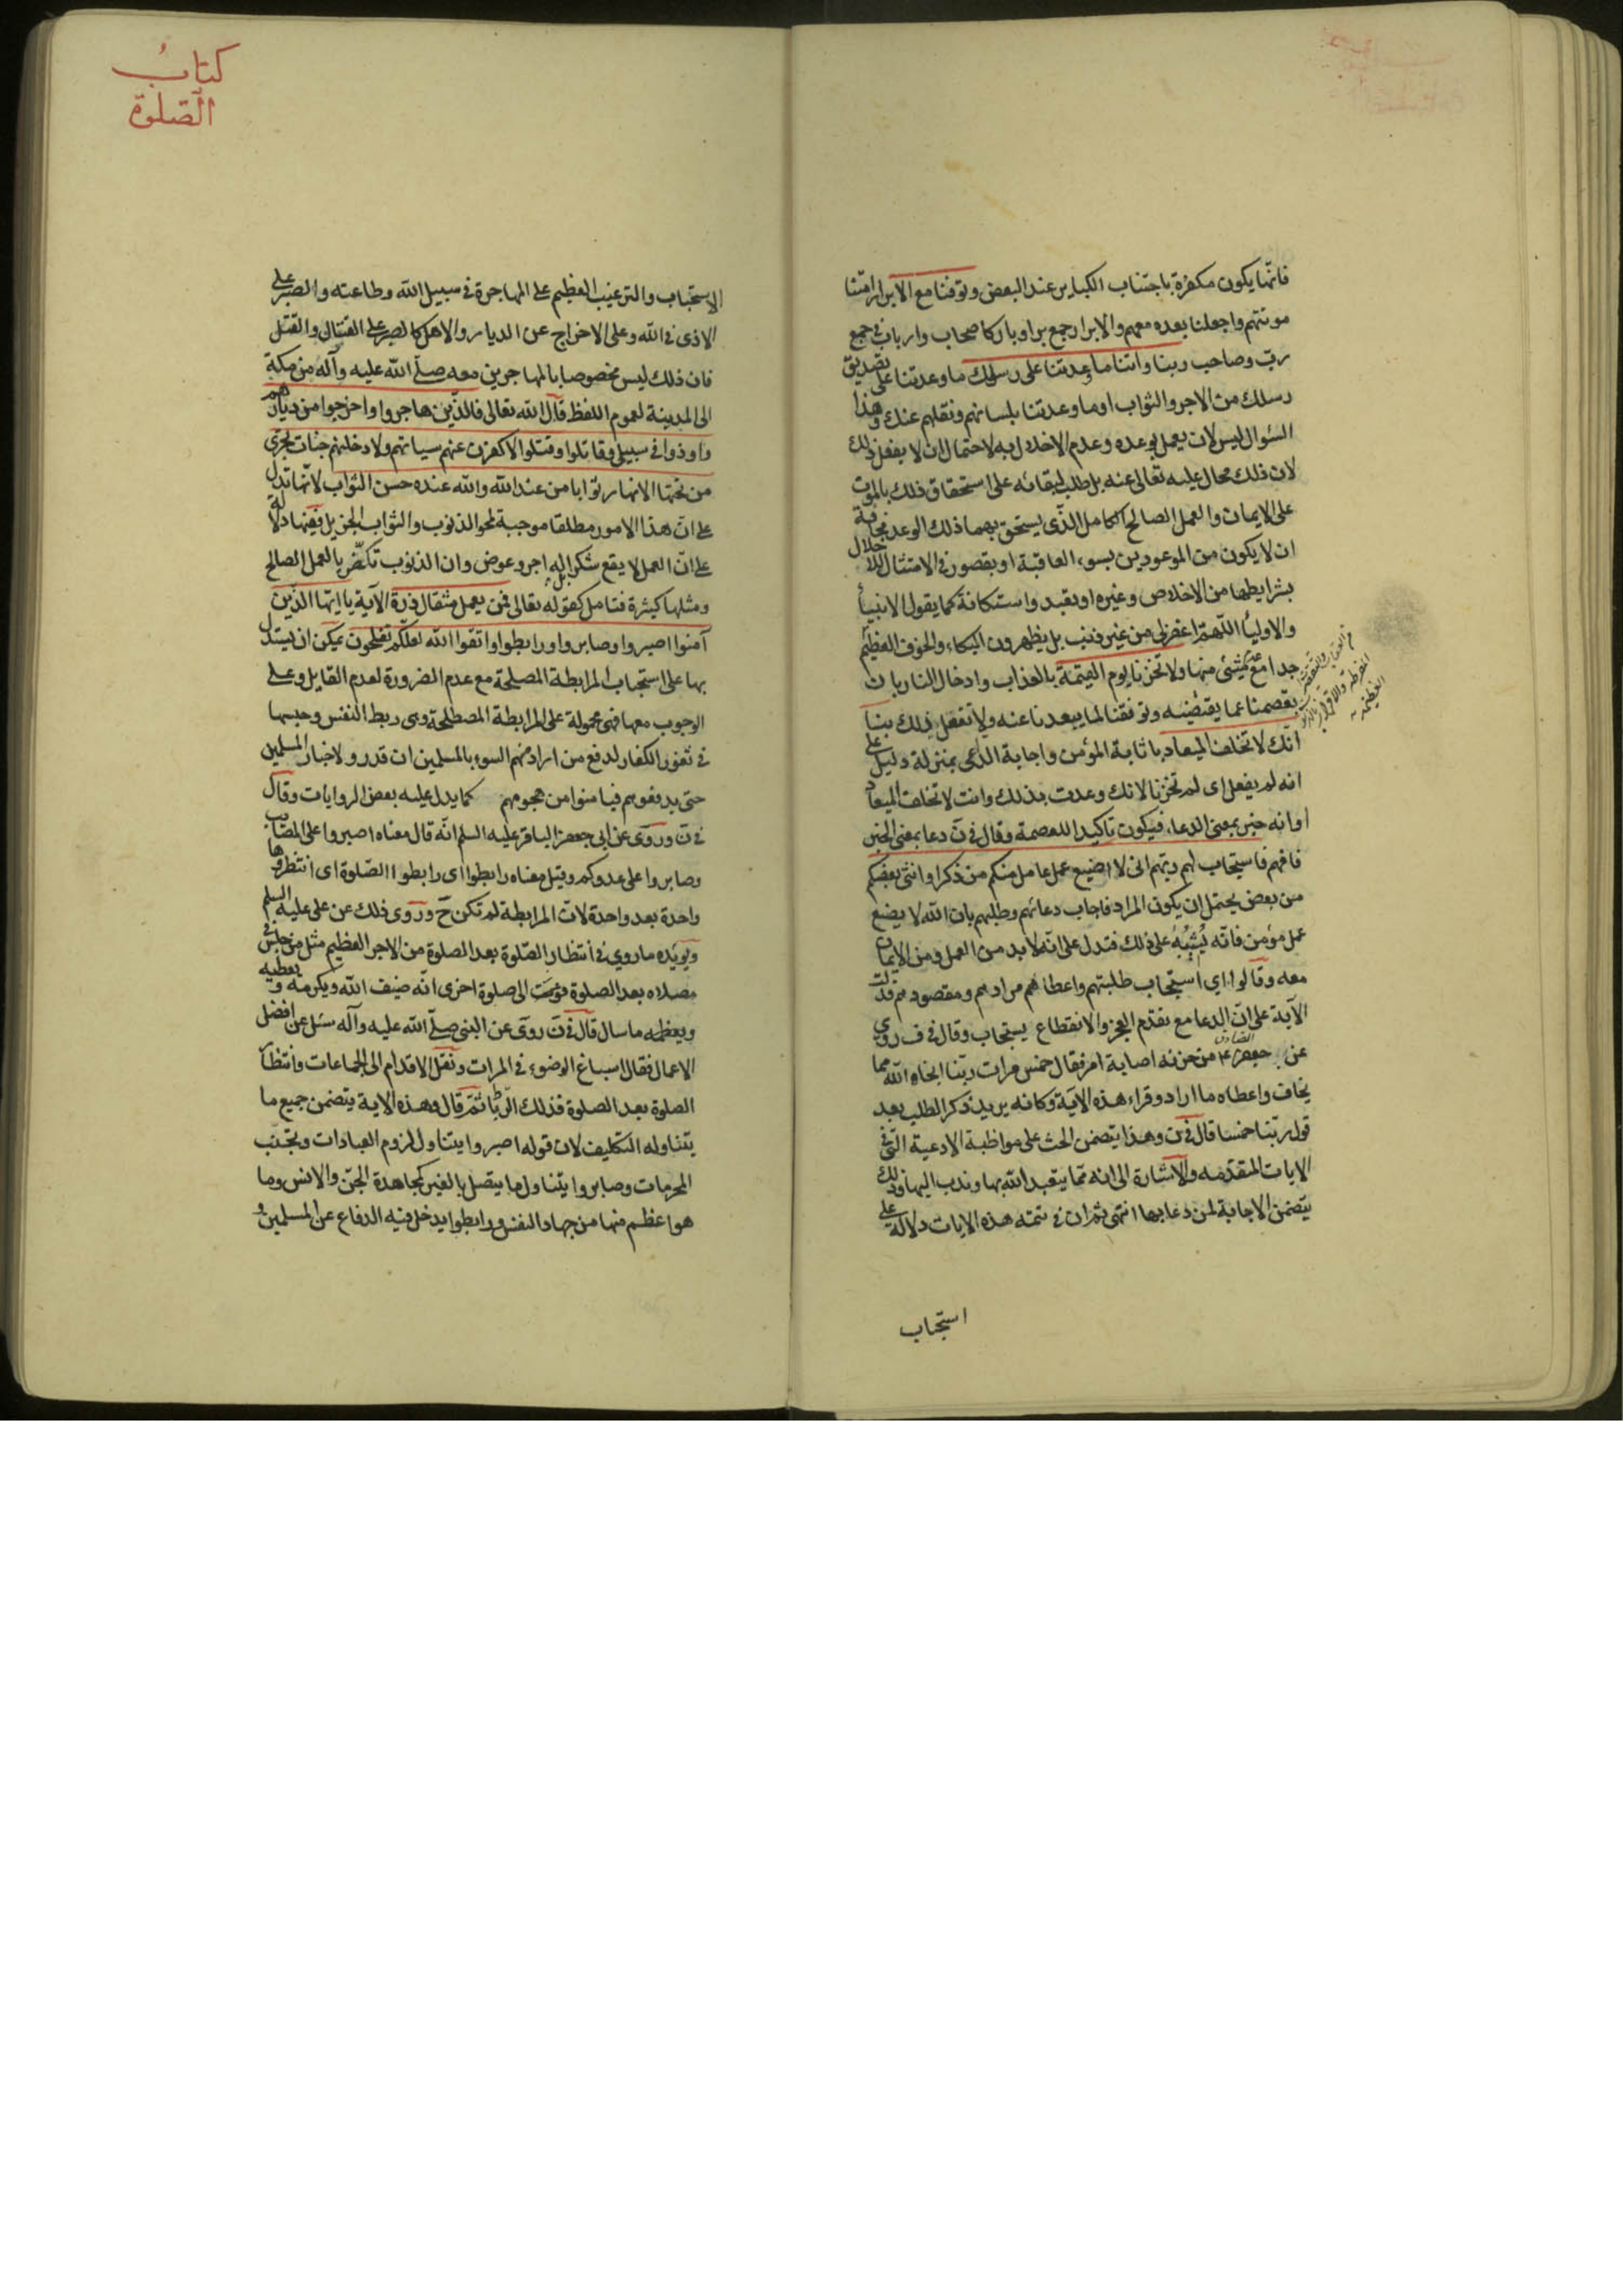 فانّها يكون مكفرة باجتناب الكباير عند البعض وتوفنا مع الابرار امتنا
موتتهم واجعلنا بعده معهم والابرار جمع بر او بار كاصحاب وارباب في جمع
ربّ وصاحب ربنا واتنا ما وعدتنا على رسلك ما وعدتنا على تصديق
رسلك من الاجر والثواب او ما وعدتنا بلسانهم ونقلهم عنك وهذا
السئوال ليس لان يعمل بوعده وعدم الاخلال به لاحتمال ان لا يفعل ذلك
لان ذلك محال عليه تعالى عنه بل طلب لبقائه على استحقاق ذلك بالموت
على الايمان والعمل الصالح الكامل الذّى يستحق بهما ذلك الوعد مخافة
ان لا يكون من الموعودين بسوء العاقبة او بقصور في الامتثال للاخلال
بشرايطها من الاخلاص وغيره او تعبد واستكانة كما يقول الانبياء
والاولياء اللّهمّ اغفر لي من غير ذنب بل يظهرون البكاء والخوف العظيم
جدا مع عدم شيئ منها ولا تخزنا يوم القيمة بالعذاب وادخال النار بان
يعصمنا عما يقتضيه وتوفقنا لما يبعدنا عنه ولا تفعل ذلك بنا
انّك لا تخلف الميعاد باثابة المؤمن واجابة الداعى بمنزلة دليل على
انه لم يفعل اى لم تخزنا لانك وعدت بذلك وانت لا تخلف الميعاد
او انه خبر بمعنى الدعاء فيكون تاكيدا للعصمة وقال في ن دعا بمعنى الخبر
فافهم فاستجاب لهم ربّهم انى لا اضيع عمل عامل منكم من ذكر او انثى بعضكم
من بعض يحتمل ان يكون المراد فاجاب دعائهم وطلبهم بان الله لا يضيع
عمل مؤمن فانّه يُثيبُهُ على ذلك فتدل على انّه لا بد من العمل ومن الايمان
معه وقالوا اي استجاب طلبتهم واعطاهم مرادهم ومقصودهم فدلت
الآية على انّ الدعا مع تقدّم العجز والانقطاع يستجاب وقال في ف روى
عن جعفر الصادق ع من حزنه اصابه امر فقال خمس مرات ربّنا انجاه الله مما
يخاف واعطاه ما اراد وقراء هذه الآية وكانه يريد ذكر الطلب بعد
قول ربّنا خمسا قال في ن وهذا يتضمن الحث على مواظبة الادعية التّى في
الايات المتقدّمه والاشارة الى انه ممّا يتعبد الله بها وندب اليها وذلك
يتضمن الاجابة لمن دعا بها انتهى ثم ان في تتمه هذه الايات دلالة على
استحباب
كتابُ
الصّلوة
الاستحباب والترغيب العظيم على المهاجرة في سبيل الله وطاعته والصبر على
الاذى في الله وعلى الاخراج عن الديار والاهل كالصبر على القتال والقتل
فان ذلك ليس مخصوصا بالمهاجرين معه صلّى الله عليه وآله من مكة
الى المدينة لعموم اللفظ قال الله تعالى فالذين هاجروا واخرجوا من ديارهم
واوذوا في سبيلى وقاتلوا وقتلوا لاكفرن عنهم سياتهم ولادخلنهم جنات تجرى
من تحتها الانهار ثوابا من عند الله والله عنده حسن الثواب لانّها تدل
على انّ هذا الامور مطلقا موجبة لمحو الذنوب والثواب الجزيل ففيها دلالة
على انّ العمل لا يقع شكرا بل له اجر وعوض وان الذنوب تكفّر بالعمل الصالح
ومثلها كثيرة فتامل كقوله تعالى فمن يعمل مثقال ذرة الآية يا ايّها الذّين
آمنوا اصبروا وصابروا ورابطوا واتقوا الله لعلّكم تفلحون يمكن ان يستدل
بها على استحباب المرابطة المصلحة مع عدم الضرورة لعدم القايل وعلى
الوجوب معها فهى محمولة على المرابطة المصطلحة وهى ربط النفس وحبسها
في ثغور الكفار لدفع من اراد منهم السوء بالمسلمين ان قدر ولاخبار المسلمين
حتى يدفعوهم فيامنوا من هجومهم كما يدل عليه بعض الروايات وقال
في ن وروى عن ابى جعفر الباقر عليه السلم انّه قال معناه اصبروا على المصايب
وصابروا على عدوكم وقيل معناه رابطوا اى رابطوا الصّلوة اى انتظروها
واحدة بعد واحدة لانّ المرابطة لم تكن ح وروى ذلك عن على عليه السلم
ويويّده ما روي في انتظار الصّلوة بعد الصلوة من الاجر العظيم مثل من جلس في
مصلاه بعد الصلوة الى صلوة اخرى انّه ضيف الله ويكرمه ويعطيه
ويعظمه ما سال قال في ن روى عن النبى صلّى الله عليه وآله سئل عن افضل
الاعمال فقال اسباغ الوضوء في المرات ونقل الاقدام الى الجماعات وانتظار
الصلوة بعد الصلوة فذلك الرّباط ثمّ قال وهذه الاية يتضمن جميع ما
يتناوله التكليف لان قوله اصبروا يتناول لزوم العبادات وتجنب
المحرمات وصابروا يتناول ما يتصل بالغير كمجاهدة الجنّ والانس وما
هو اعظم منها من جهاد النفس ورابطوا يدخل فيه الدفاع عن المسلمين و